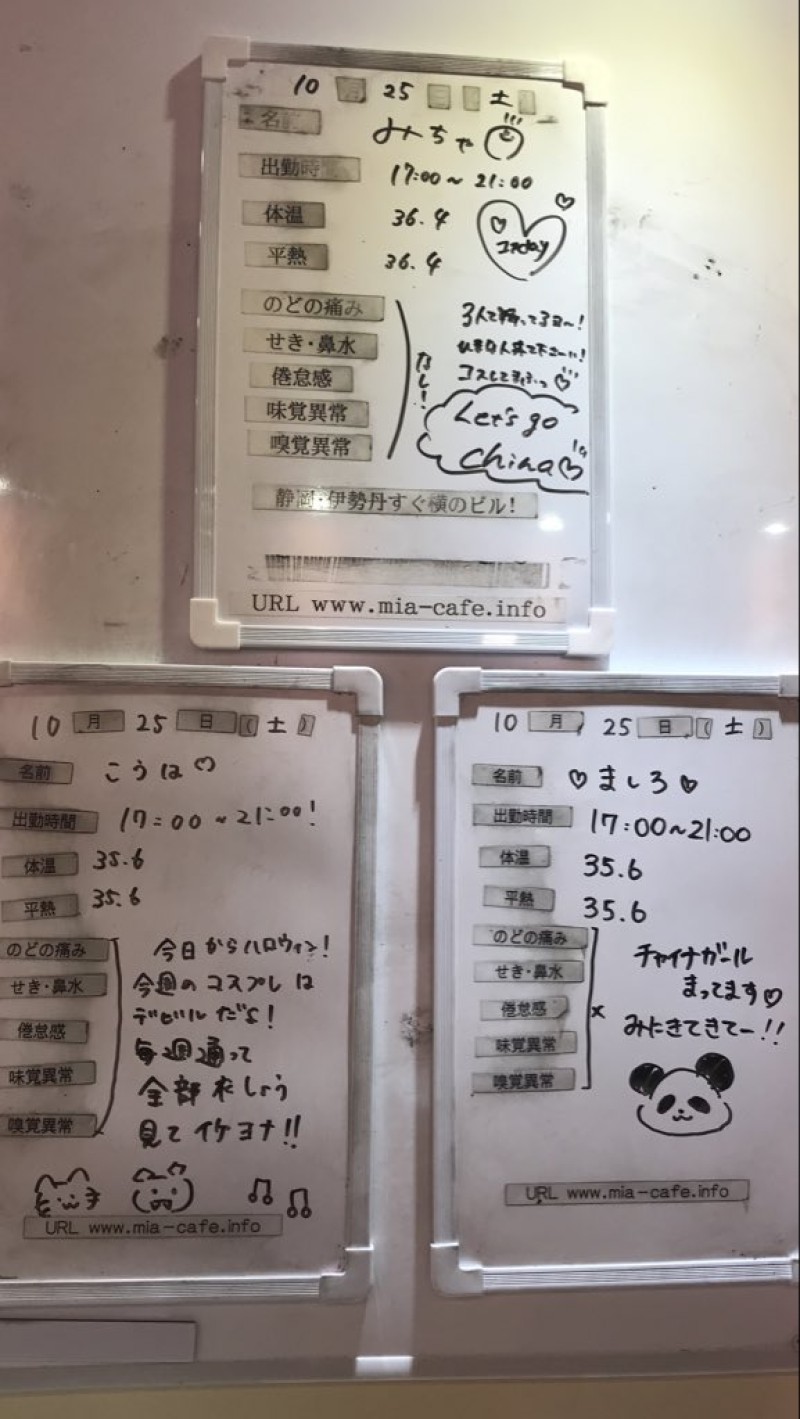 10月25日(土)
名前 みちゃ
出勤時間 17:00~21:00
体温 36.4
平熱 36.4
のどの痛み
せき・鼻水
倦怠感
味覚異常
嗅覚異常
なし!
Let's go
China
静岡・伊勢丹すぐ横のビル!
URL www.mia-cafe.info
10月25日(土)
名前 こうは♡
出勤時間 17:00~21:00!
体温 35.6
平熱 35.6
のどの痛み
せき・鼻水
倦怠感
味覚異常
嗅覚異常
今日からハロウィン!
今週のコスプレは
デビルだよ!
毎週通って
全部
見てイケヨナ!!
URL www.mia-cafe.info
10月25日(土)
名前 ♡ましろ♡
出勤時間 17:00~21:00
体温 35.6
平熱 35.6
のどの痛み
せき・鼻水
倦怠感
味覚異常
嗅覚異常
×
チャイナガール
まってます♡
みにきてきてー!!
URL www.mia-cafe.info